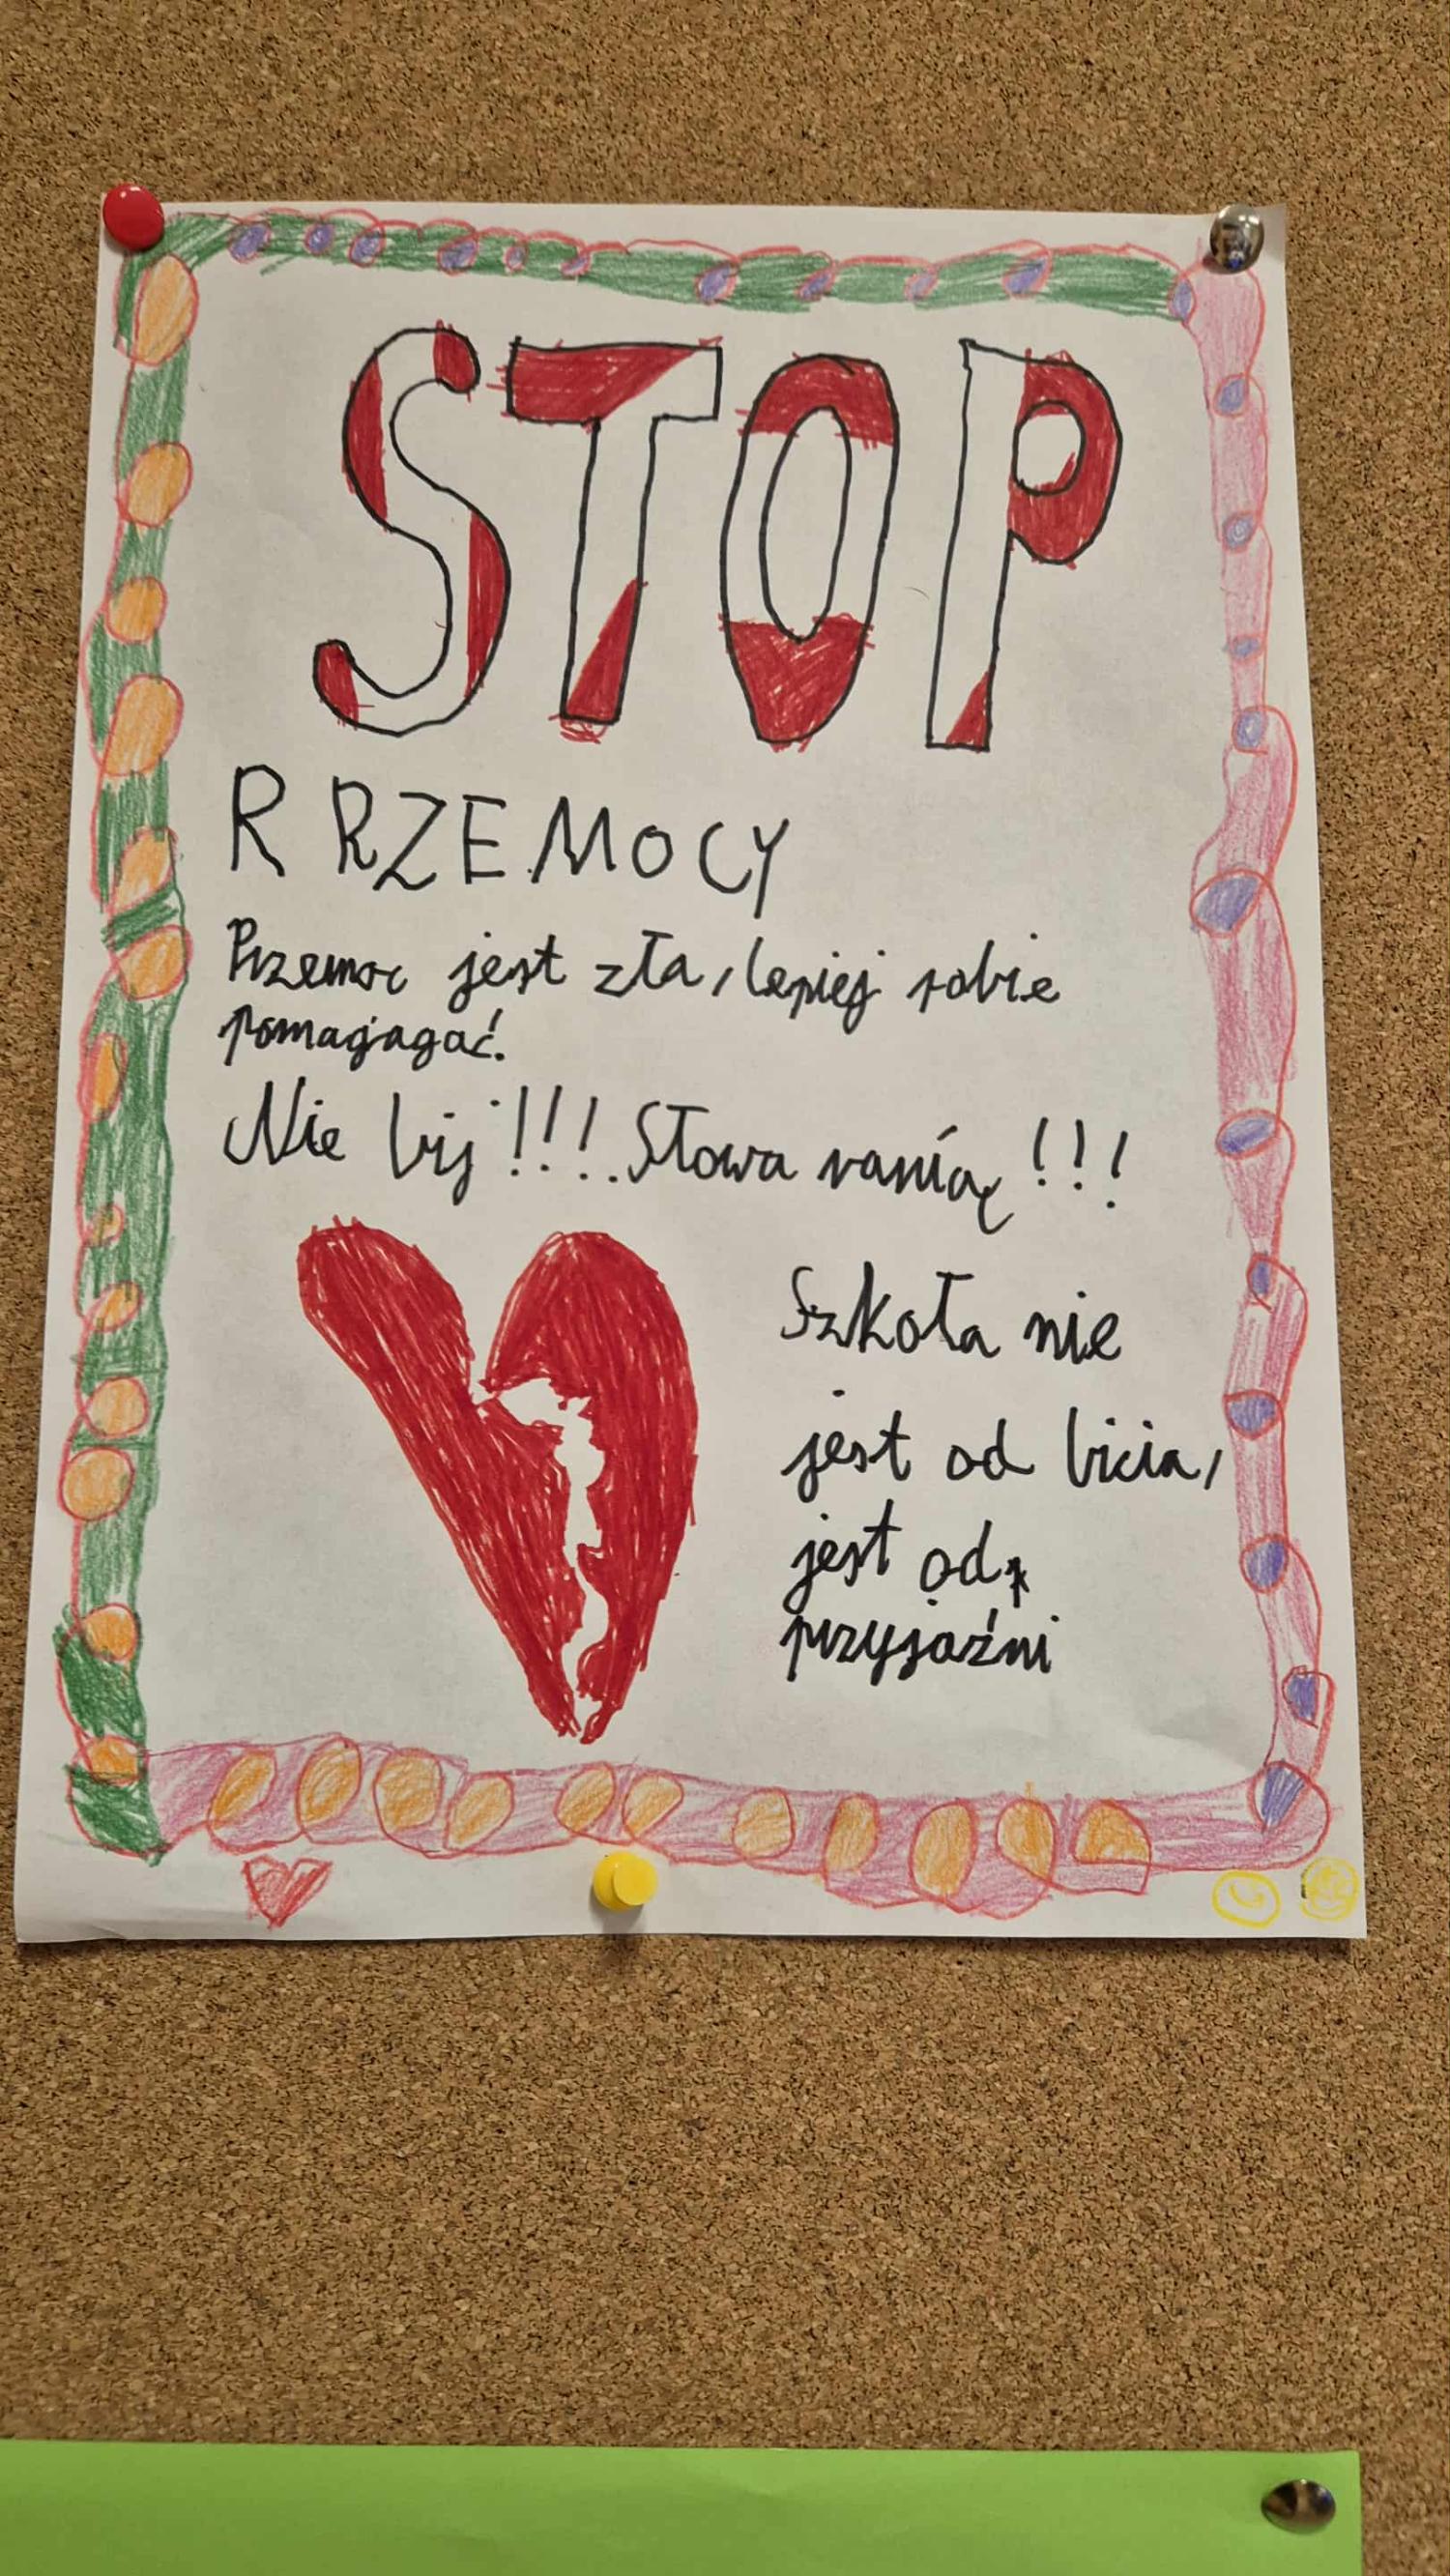 STOP
R RZEMOCY
Przemoc jest zła, lepiej sobie
pomagagać.
Nie bij!!! Słowa ranią!!!
Szkoła nie
jest od bicia,
jest od
przyjaźni